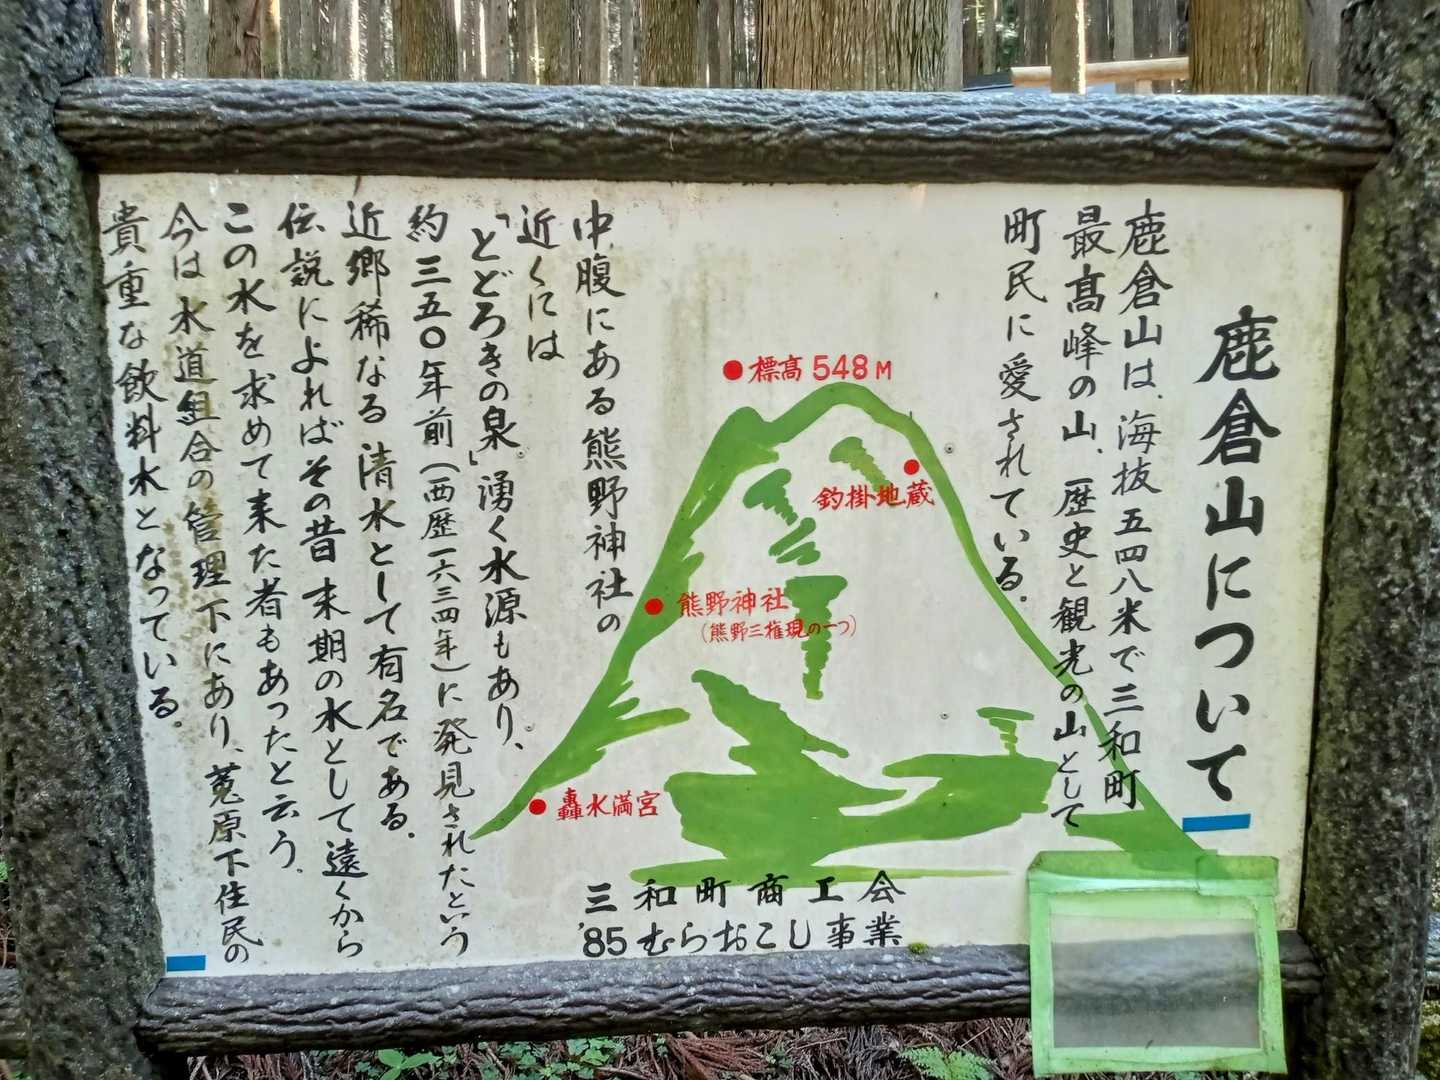 鹿倉山について
鹿倉山は、海抜五四八米で三和町
最高峰の山、歴史と観光の山として
町民に愛されている。
標高548M
釣掛地蔵
熊野神社
(熊野三権現の一つ)
轟水満宮
中腹にある熊野神社の
近くには
「とどろきの泉」湧く水源もあり、
約三五〇年前(西歴一六三四年)に発見されたという
近郷稀なる清水として有名である。
伝説によればその昔末期の水として遠くから
この水を求めて来た者もあったと云う。
今は水道組合の管理下にあり、莵原下住民の
貴重な飲料水となっている。
三和町商工会
'85むらおこし事業